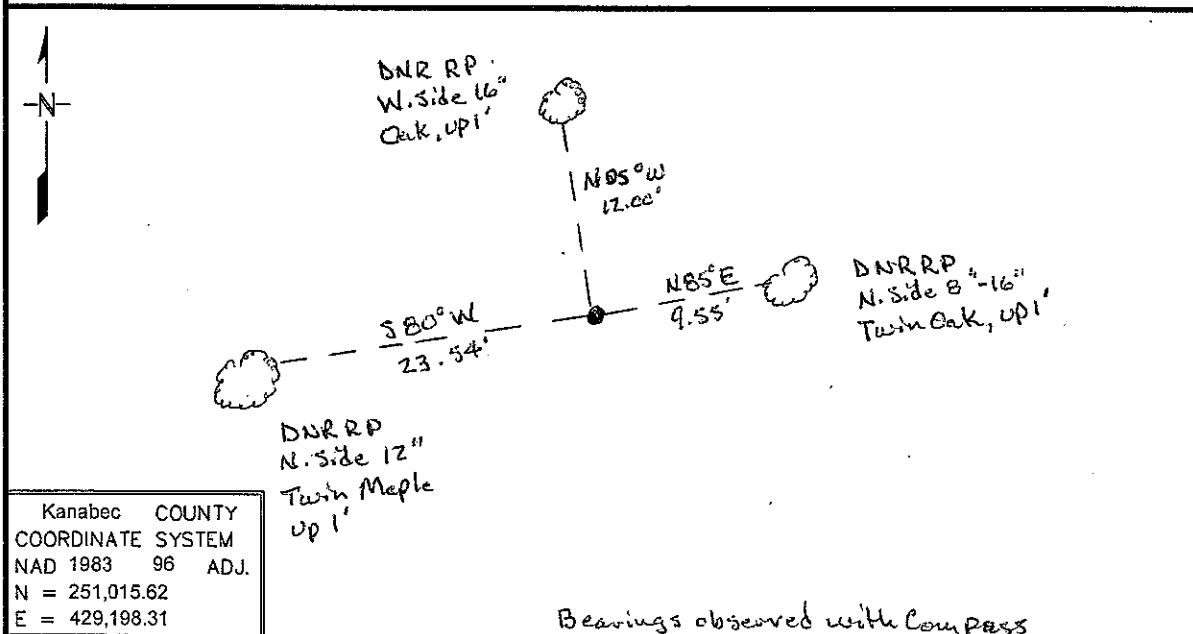 -N-
DNR RP
W. Side 16"
Oak, up 1'
N05°W
12.00'
N85°E
9.55'
DNR RP
N. Side 8"-16"
Twin Oak, up 1'
S80°W
23.54'
DNR RP
N. Side 12"
Twin Maple
up 1'
Kanabec COUNTY
COORDINATE SYSTEM
NAD 1983 96 ADJ.
N = 251,015.62
E = 429,198.31
Bearings observed with Compass